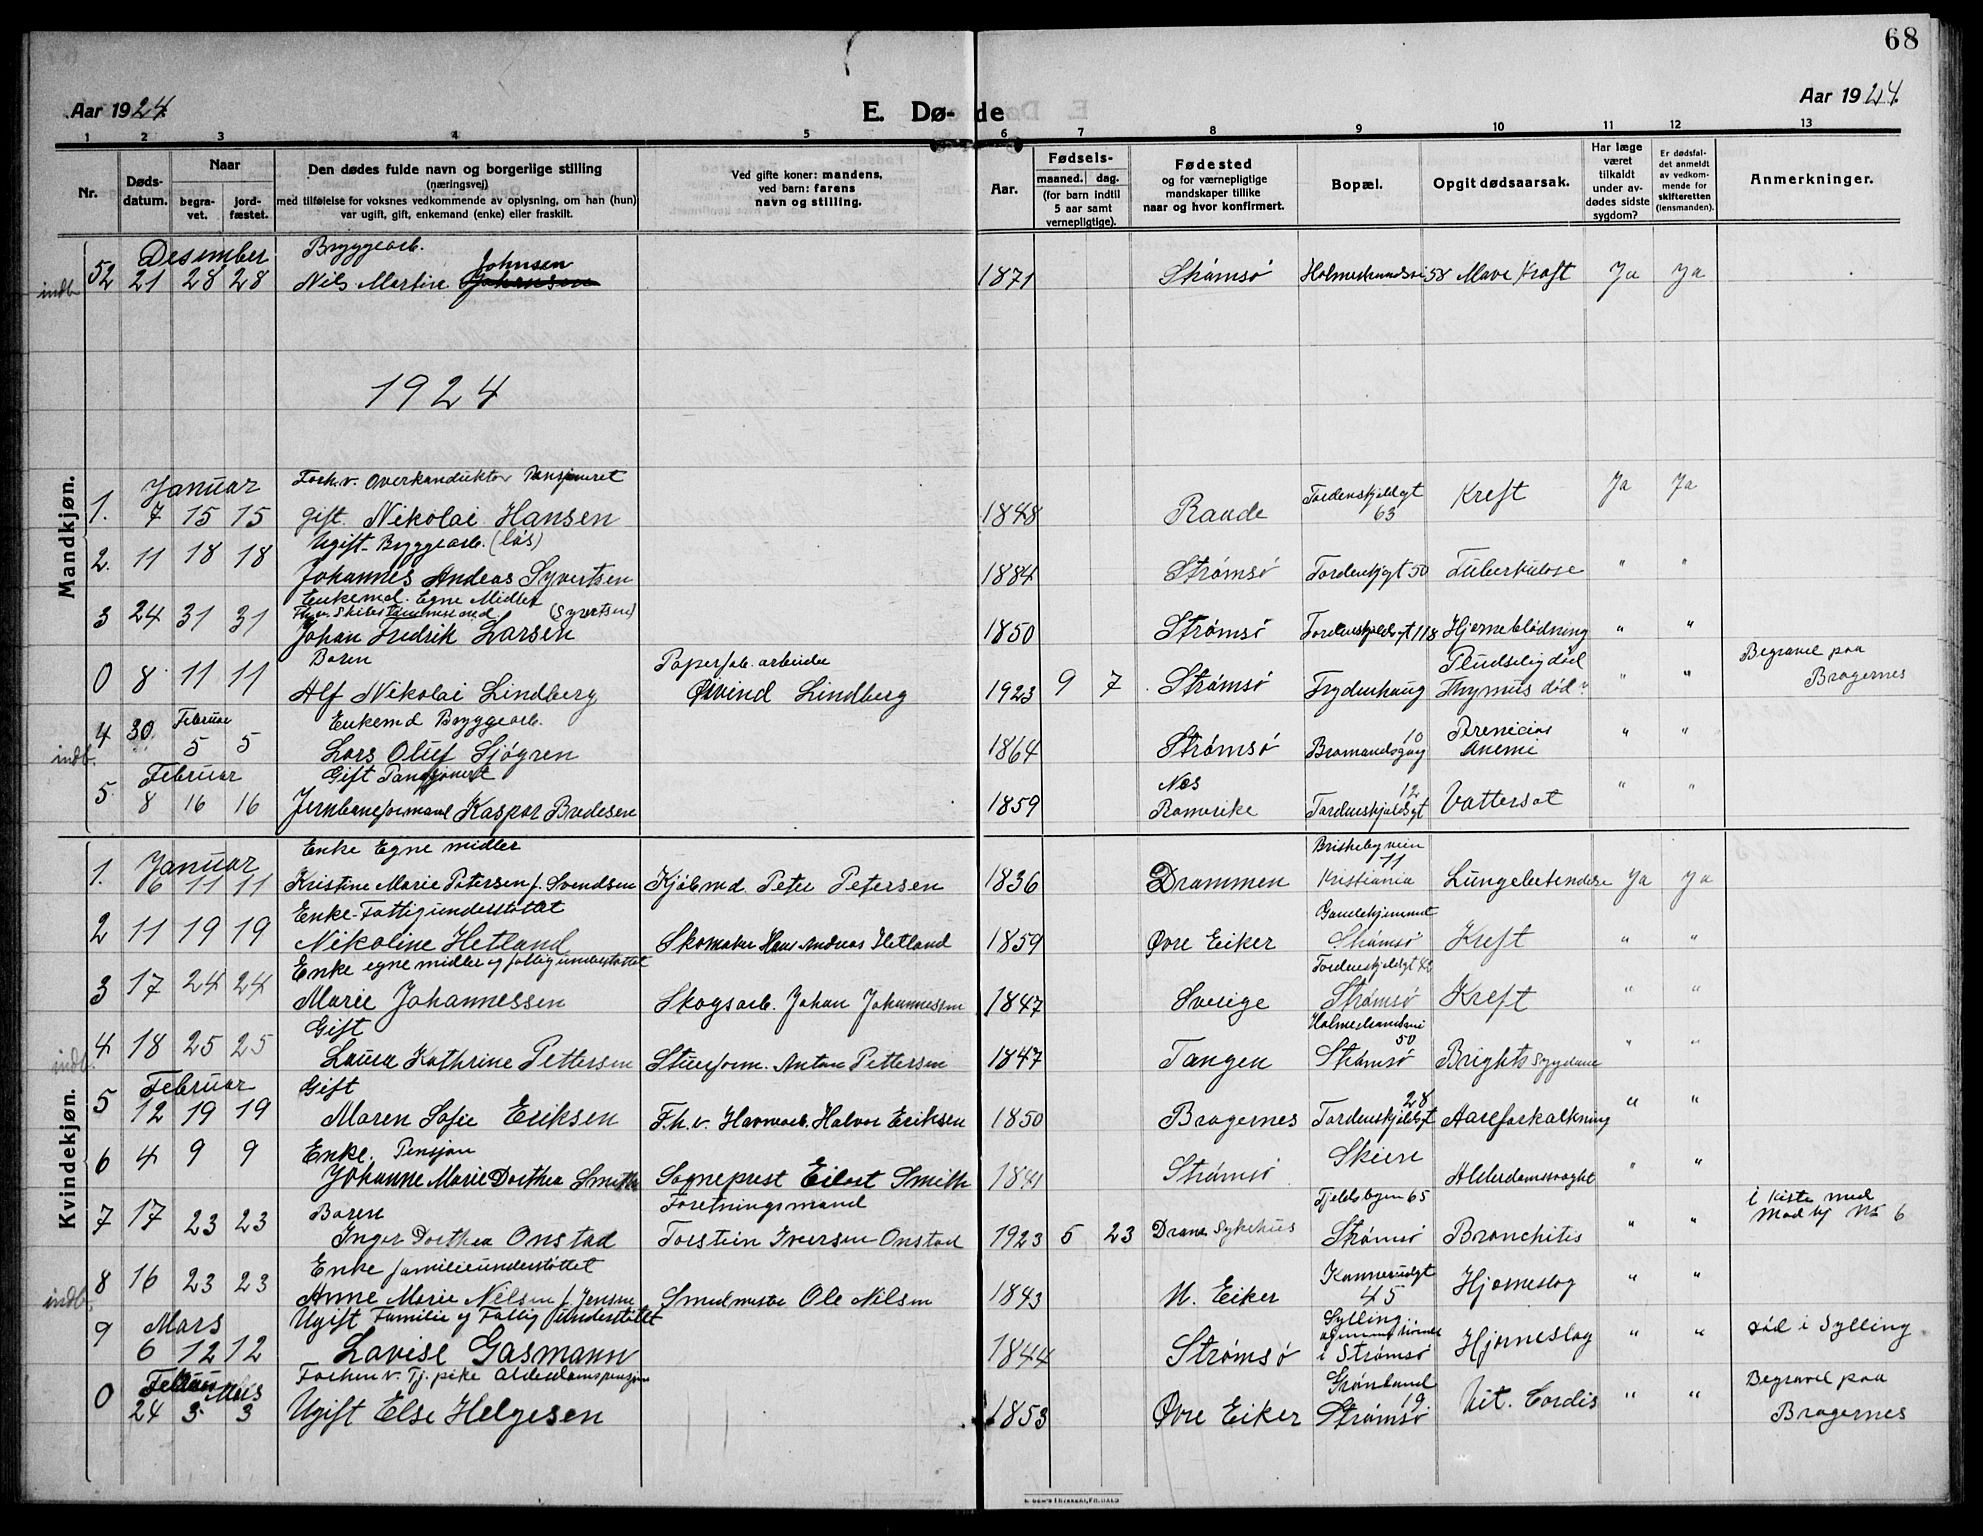 68
Aar 1924 E. Dø- de Aar 1924
1 2 3 4 5 6 7 8 9 10 11 12 13
Nr. Døds-datum. Naar begra-vet. jord-fæstet. Den dødes fulde navn og borgerlige stilling (næringsvei) med tilføielse for voksnes vedkommende av oplysning, om han (hun) var ugift, gift, enkemand (enke) eller fraskilt. Ved gifte koner: mandens, ved barn: farens navn og stilling. Aar. Fødsels- maaned. dag. (for barn indtil 5 aar samt vernepligtige). Fødested og for værnepligtige mandskaper tillike naar og hvor konfirmert. Bopæl. Opgit dødsaarsak. Har læge været tilkaldt under av-dødes sidste sygdom? Er dødsfal-det anmeldt av vedkom-mende for skifteretten (lensmanden). Anmerkninger.
Desember Bryggearb. Johnsen
indb 52 21 28 28 Nils Martin Johansen 1871 Strømsø Holmestrandsvei 58 Mave Kræft Ja Ja
1924
Mandkjøn.
Januar Forh.v. Overkonduktør Pansjoneret
1. 7 15 15 gift. Nikolai Hansen 1848 Raade Tordenskjoldgt 63 Kreft Ja Ja
Ugift Bryggearb. (løs)
2. 11 18 18 Johannes Andeas Syvertsen 1884 Strømsø Tordenskjgt 50 Tuberkulose " "
Enkemd. Egne Midler
Fhv. Skibstømmermd. (Syvertsen)
3 24 31 31 Johan Fredrik Larsen 1850 Strømsø Tordenskjoldsgt 118 Hjerneblødning " "
Baren Papirfab. arbeider Pludselig død Begravet paa
0 8 11 11 Alf Nikolai Lindberg Øivind Lindberg 1923 9 7 Strømsø Frydenhaug Thymus død " " Bragernes
Februar Enkemd Bryggearb. 10 Perenicios
indb. 4 30. 5 5 Lars Oluf Sjøgren 1864 Strømsø Bromandsgang Anemi " "
Februar Gift Pansjonert Nes 12
5. 8 16 16 Jernbaneformand Kaspar Bredesen 1859 Romerike Tordenskjoldsgt Vattersot " "
Kvindekjøn.
Januar Enke Egne midler Briskebyveien 11
1. 6 11 11 Kristine Marie Petersen f. Svendsen Kjøbmd. Peter Petersen 1836 Drammen Kristiania Lungebetendelse Ja Ja
Enke-Fattigunderstøttet Gamlehjemmet
2 11 19 19 Nikoline Hetland Skomaker Hans Andreas Hetland 1859 Øvre Eiker Strømsø Kreft " "
Enke egne midler og fattigunderstøttet Tordenskjoldgt 42
3 17 24 24 Marie Johannessen Skogsarb. Johan Johannessen 1847 Sverige Strømsø Kreft " "
Gift Holmestrandsvei 50
indb. 4 18 25 25 Laura Kathrine Pettersen Stueform. Anton Pettersen 1847 Tangen Strømsø Brights Sygdom " "
Februar Gift 28
5 12 19 19 Maren Sofie Eriksen F.h.v. Havnearb. Halvor Eriksen 1850 Bragernes Tordenskjoldsgt Aareforkalkning " "
Enke. Pensjon
6 4 9 9 Johanne Marie Dorthea Smith Sogneprest Eilert Smith 1841 Strømsø Skien Alderdomssvaghet " "
Baren Foretningsmand Fjeldsbyen 65 i kiste med
7 17 23 23 Inger Dorthea Onstad Torstein Iversen Onstad 1923 5 23 Dram. Sykehus Strømsø Bronchitis " " Mad kj No 6
Enke familieunderstøttet
indb. 8 16 23 23 Anne Marie Nilsen f. Jensen Smedmester Ole Nilsen 1843 N. Eiker 45 Hjerneslag " "
Mars Ugift Familie og Fattig Understøttet Sylling
9 6 12 12 Lovise Gasmann 1844 Strømsø i Strømsø Hjerneslag " " død i Sylling
Februar Mars Forhen v. Tj. pike Alderdomspensjon Grønland 19 Begravet paa
0 24 3 3 Ugift Else Helgesen 1853 Øvre Eiker Strømsø Vit. Cordis " " Bragernes